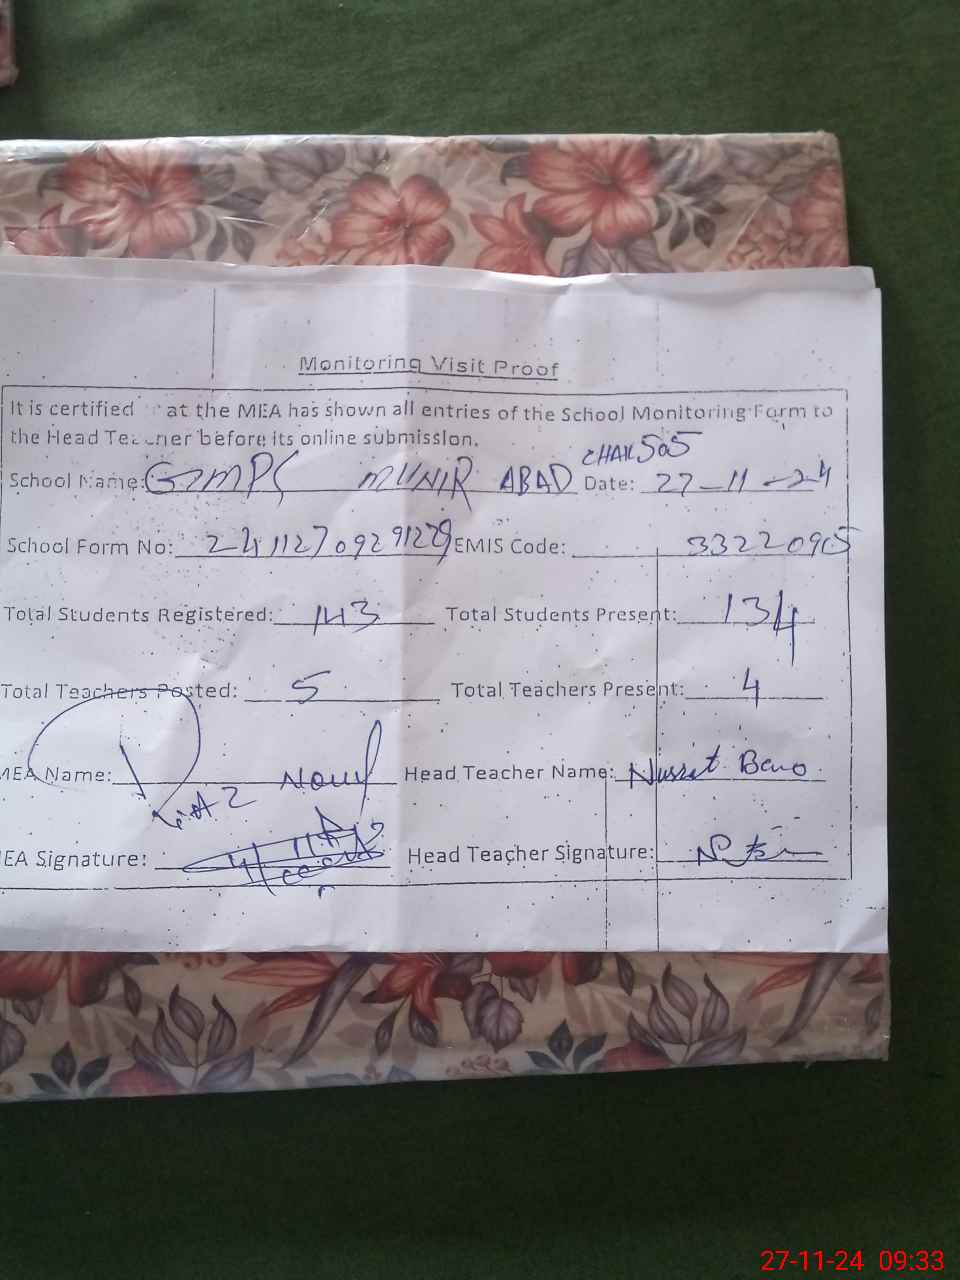 Monitoring Visit Proof
It is certified at the MEA has shown all entries of the School Monitoring Form to
the Head Teacher before its online submission.
CHAK 505
School Name: GMPS MUNIR ABAD Date: 27-11-24
School Form No: EMIS Code: 33220905
Total Students Registered: 143 Total Students Present: 134
Total Teachers Posted: 5 Total Teachers Present: 4
MEA Name: Head Teacher Name: Nusrat Bano
EA Signature: Head Teacher Signature:
27-11-24 09:33